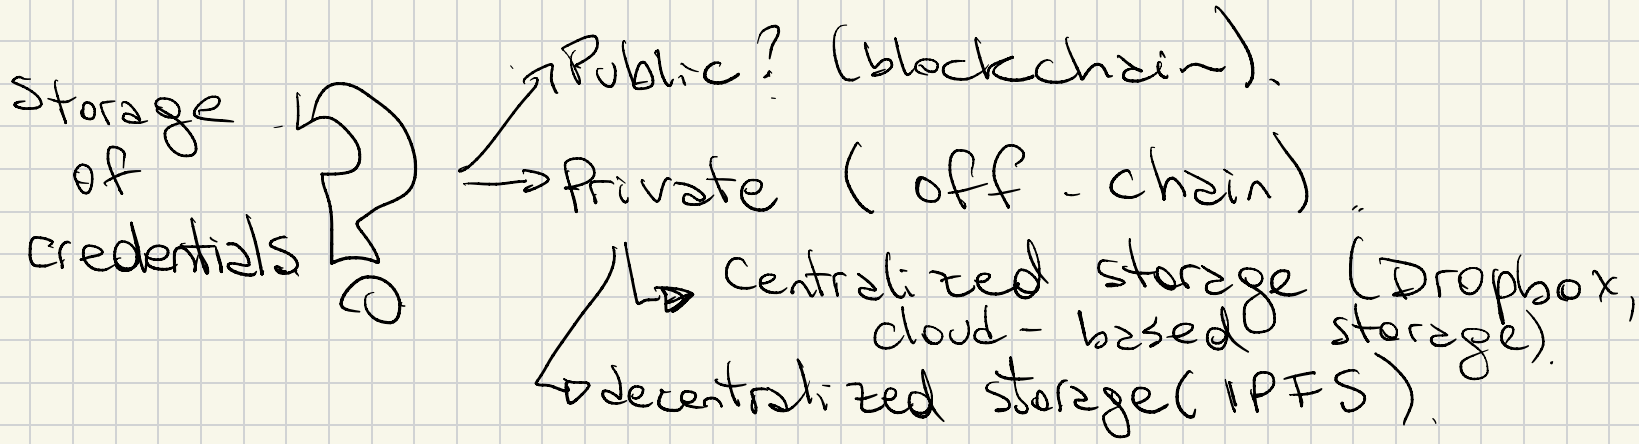 Storage
of
credentials
?
Public? (blockchain).
Private (off-chain)
Centralized storage (Dropbox,
cloud-based storage).
decentralized storage (IPFS).